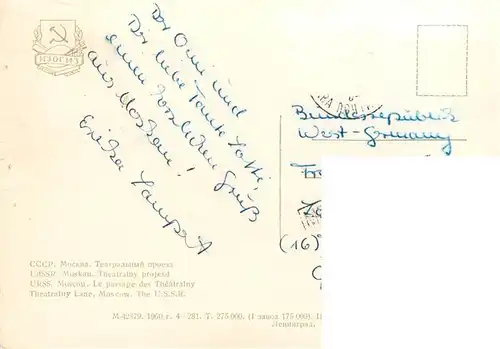 ИЗОГИЗ
Der Omi und
Dir liebe Tante Lotti,
einen herzlichen Gruß
aus Moskau!
Eriken Lampert
Bundesrepublik
West-Germany
(16)
СССР. Москва. Театральный проезд
UdSSR. Moskau. Theatralny projesd
URSS. Moscou. Le passage des Théâtralny
Theatralny Lane, Moscow. The U.S.S.R.
М-42579. 1960 г. 4 - 281. Т. 275.000. (I завод 175 000).
Ленинград,